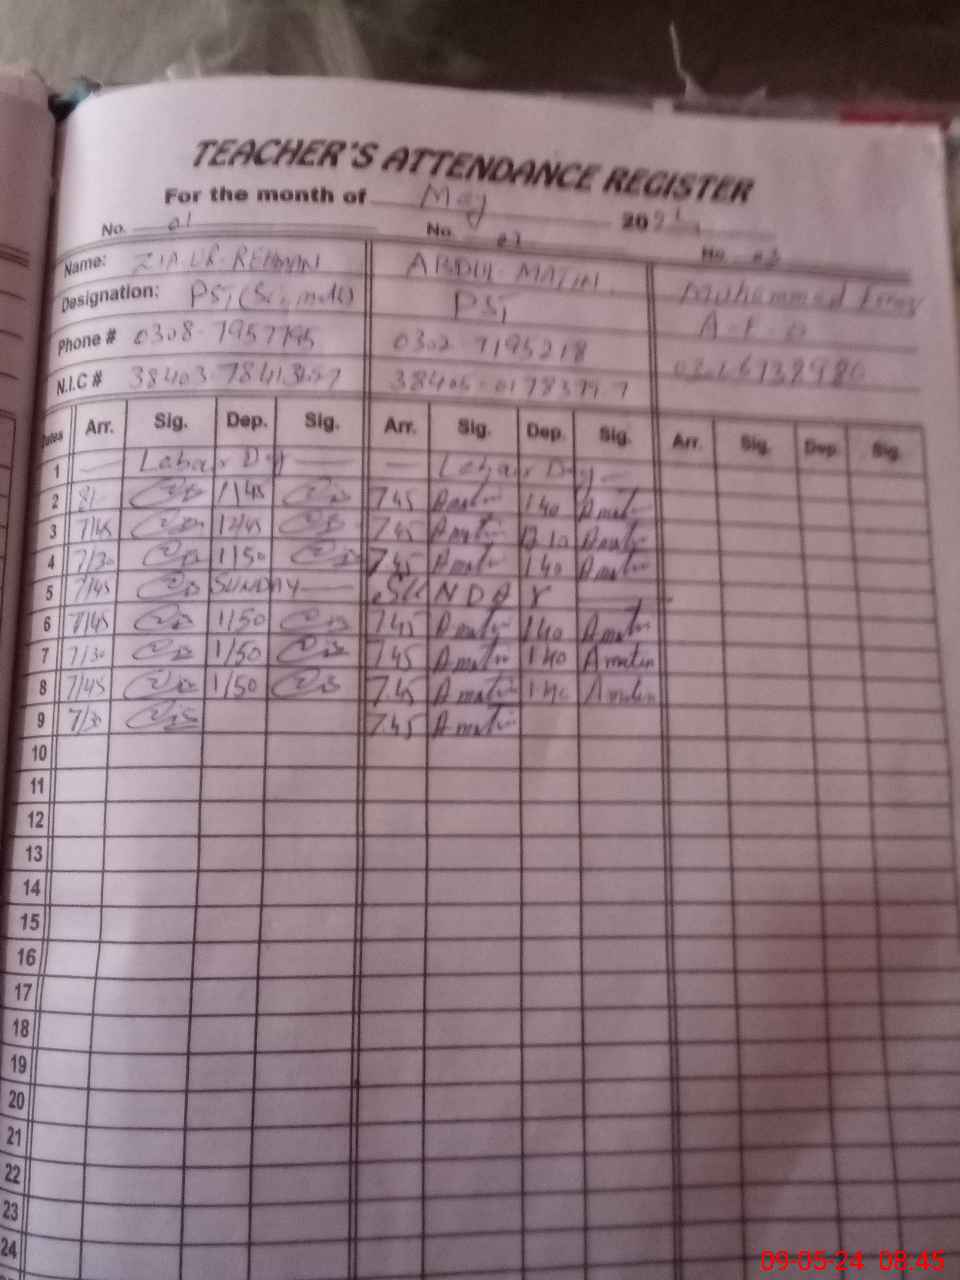 TEACHER'S ATTENDANCE REGISTER
For the month of May 20
No. 01 No. 02 No. 03
Name: ZIA UR REHMAN ABDUL MATIN Muhammad
Designation: PST (Sci, math) PST
Phone # 0308-7957795 0302-7195218
N.I.C #
Dates Arr. Sig. Dep. Sig. Arr. Sig. Dep. Sig. Arr. Sig. Dep. Sig.
1 — Labair Day — — Labair Day —
2 8/- 1/45 7.45 Amatin 1 40 Amatin
3 7/45 12/45 7.45 Amatin 12 10 Amatin
4 7/30 1/50 7.45 Amatin 1 40 Amatin
5 7/45 SUNDAY — SUNDAY
6 7/45 1/50 7.45 Amatin 1 40 Amatin
7 7/30 1/50 7.45 Amatin 1 40 Amatin
8 7/45 1/50 7.45 Amatin 1 40 Amatin
9 7/30 7.45 Amatin
10
11
12
13
14
15
16
17
18
19
20
21
22
23
24
09-05-24 08:45